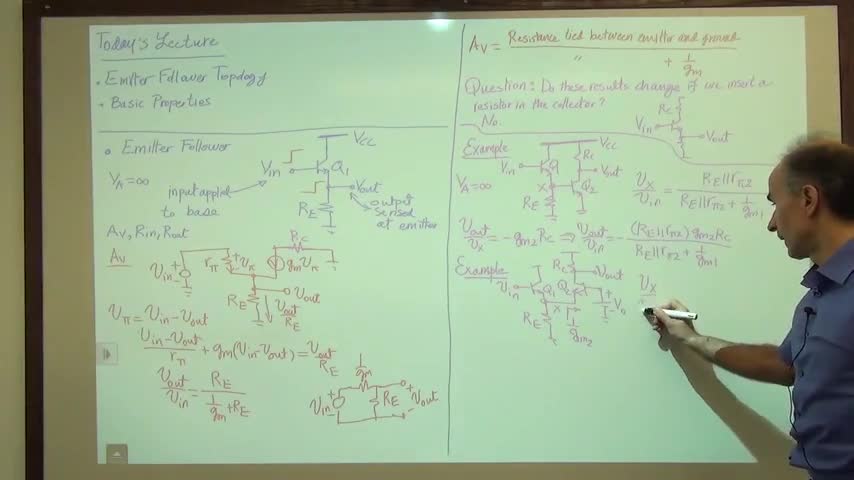 Today's Lecture
• Emitter Follower Topology
• Basic Properties
• Emitter Follower
V_A = ∞
input applied to base
Vin
VCC
Q1
Vout
RE
output sensed at emitter
Av, Rin, Rout
Av
Vin + -
rπ + Vπ -
gm Vπ
RC
RE
Vout
Vout/RE
Vπ = Vin - Vout
(Vin - Vout)/rπ + gm(Vin - Vout) = Vout/RE
Vout/Vin = RE/(1/gm + RE)
Vin + -
1/gm
RE
+ Vout -
Av = Resistance tied between emitter and ground / ( " + 1/gm )
Question: Do these results change if we insert a
resistor in the collector?
No.
RC
Vin
Vout
Example
V_A = ∞
Vin
Q1
X
RE
VCC
RC
Vout
Q2
Vx/Vin = RE||rπ2 / (RE||rπ2 + 1/gm1)
Vout/Vx = -gm2 RC ⇒ Vout/Vin = - (RE||rπ2) gm2 RC / (RE||rπ2 + 1/gm1)
Example
Vin
Q1
Q2
RC
Vout
X
RE
1/gm2
+ - Vb
Vx